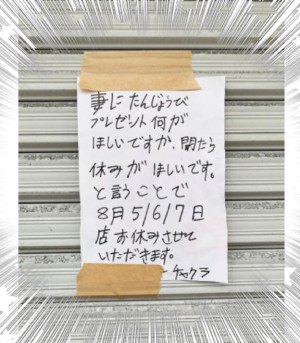 妻にたんじょうび
プレゼント何が
ほしいですか、聞たら
休みがほしいです。
と言うことで
8月5/6/7日
店お休みさせて
いただきます。
チャクラ